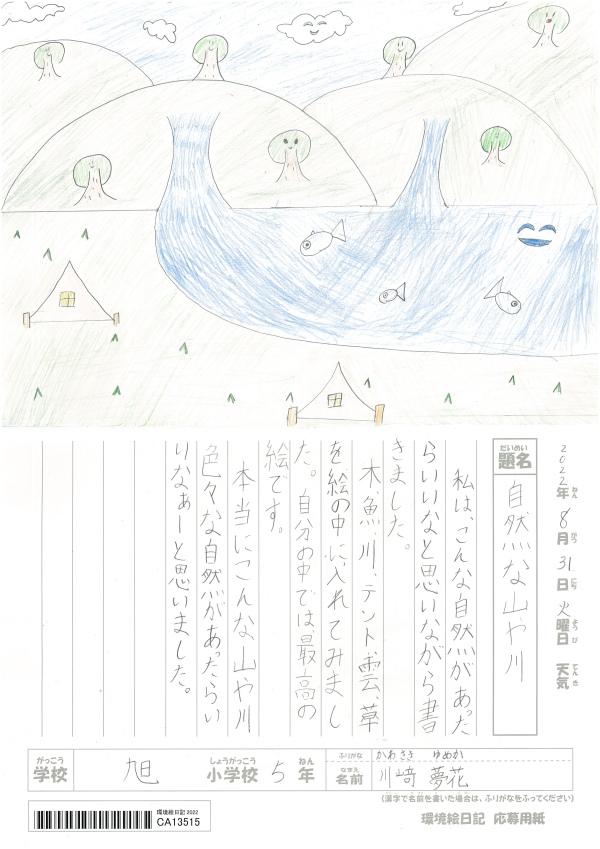 2022年ねん 8月がつ 31日にち 火曜日ようび 天気てんき
題名だいめい
自然な山や川
私は、こんな自然があった
らいいなと思いながら書
きました。
木、魚、川、テント、雲、草
を絵の中に入れてみまし
た。自分の中では、最高の
絵です。
本当にこんな山や川
色々な自然があったらい
いなぁーと思いました。
学校がっこう 旭 小学校しょうがっこう 5年ねん
ふりがな かわさき ゆめか
名前なまえ 川﨑 夢花
(漢字で名前を書いた場合は、ふりがなをふってください)
環境絵日記 応募用紙
環境絵日記 2022
CA13515